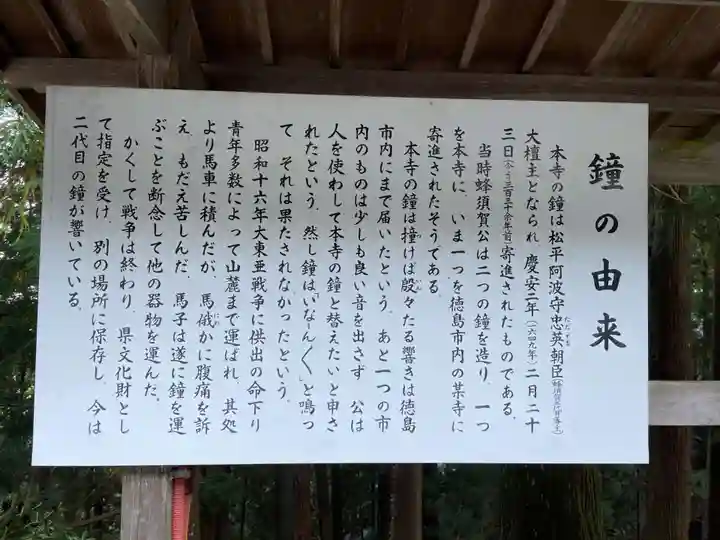 鐘の由来
本寺の鐘は松平阿波守忠英朝臣
大檀主となられ、慶安二年(一六四九年)二月二十
三日(今より三百三十余年前)寄進されたものである。
当時蜂須賀公は二つの鐘を造り、一つ
を本寺に、いま一つを徳島市内の某寺に
寄進されたそうである。
本寺の鐘は撞けば殷々たる響きは徳島
市内にまで届いたという。あと一つの市
内のものは少しも良い音を出さず、公は
人を使わして本寺の鐘と替えたいと申さ
れたという。然し鐘は「いなーん〱」と鳴っ
て、それは果たされなかったという。
昭和十六年大東亜戦争に供出の命下り
青年多数によって山麓まで運ばれ、其処
より馬車に積んだが、馬俄かに腹痛を訴
え、もだえ苦しんだ。馬子は遂に鐘を運
ぶことを断念して他の器物を運んだ。
かくして戦争は終わり、県文化財とし
て指定を受け、別の場所に保存し、今は
二代目の鐘が響いている。